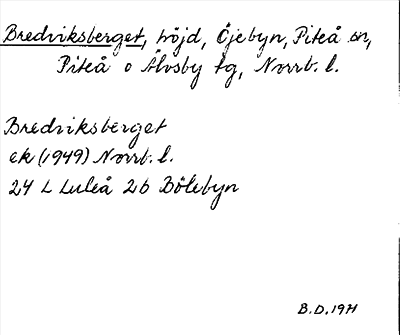 Bredviksberget, höjd, Öjebyn, Piteå sn,
Piteå o Älvsby tg, Norrb. l.
Bredviksberget
ek (1949) Norrb. l.
24 L Luleå 2b Bölebyn
B.D. 1971